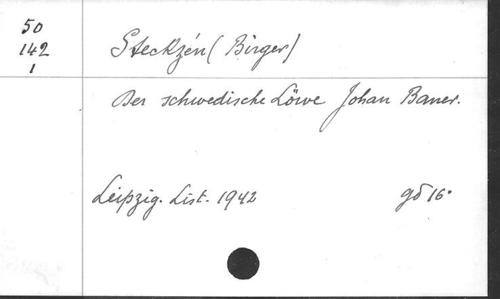 50
142
1
Steckzén (Birger)
Der schwedische Löwe Johan Baner.
Leipzig. List. 1942
gd 16°